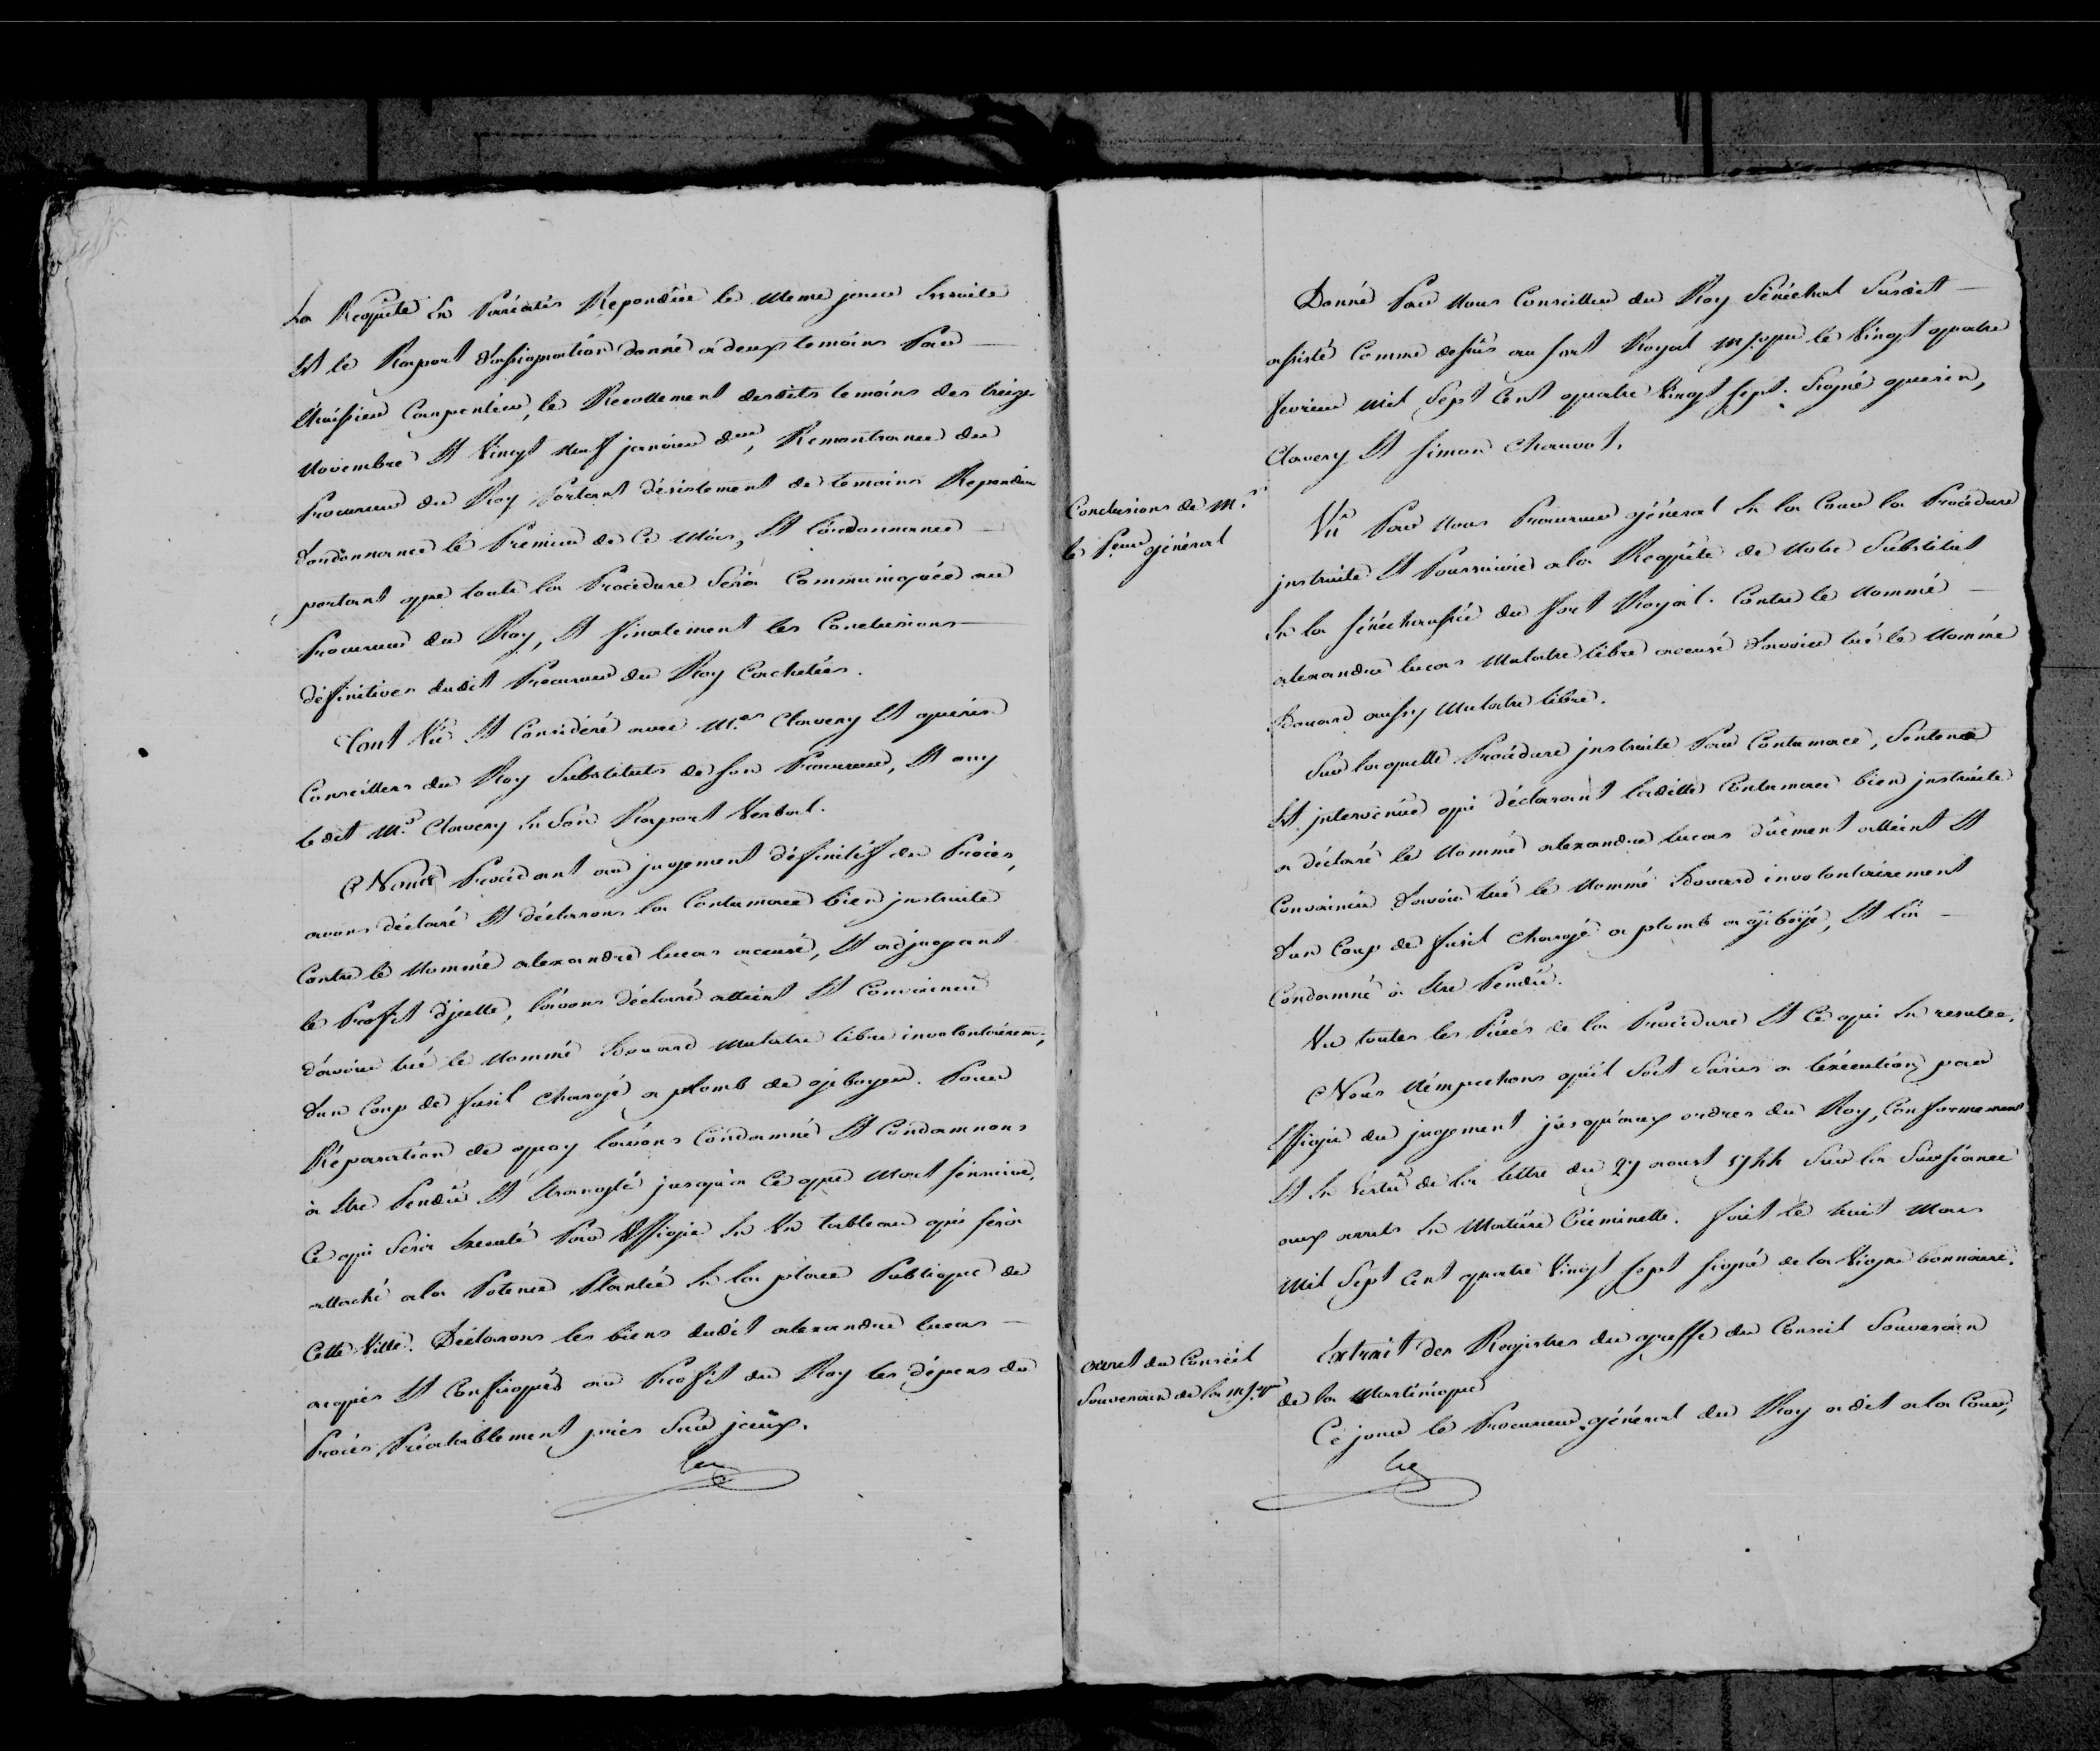 La Requête En Paréatis Repondüe le meme jour Ensuite
Et le Raport d'assignation donné a deux temoins Par
L'huissier Carpentier, le Recollement desdits temoins des treize
Novembre Et Vingt neuf janvier der, Remontrance du
Procureur du Roy Portant désistement de temoins Repondüe
d'ordonnance le Premier de Ce mois, Et l'ordonnance
portant que toute la Procédure Sera Communiquée au
Procureur du Roy, Et finalement les Conclusions
définitives dudit Procureur du Roy Cachetées.
Tout Vû Et Considéré avec Mes Clavery Et guerin
Conseillers du Roy Substituts de son Procureur, Et ouy
ledit Me Clavery En Son Raport Verbal.
Nous Procédant au jugement définitif du Procès,
avons déclaré Et déclarons la Contumace bien instruite
Contre le Nommé alexandre lucas accusé, Et adjugeant
le Profit d'jcelle, l'avons déclaré atteint Et Convaincû
d'avoir tué le Nommé Edouard Mulatre libre involontairemt
d'un Coup de fusil Chargé a plomb de giboyer. Pour
Réparation de quoy l'avons Condamné Et Condamnons
à Etre Pendû Et Etranglé jusqu'a Ce que Mort s'ensuive,
Ce qui Sera Executé Par Effigie En Un tableau qui sera
attaché a la Potence Plantée En la place Publique de
Cette Ville. Déclarons les biens dudit alexandre lucas
acquis Et Confisqués au Profit du Roy les dépens du
Procès Préalablement pris Sur jceux.
Donné Par Nous Conseiller du Roy Sénéchal Susdit
assisté Comme dessus au fort Royal Mque le Vingt quatre
fevrier Mil Sept Cent quatre Vingt sept. Signé guerin,
Clavery Et Simon Chauvot.
Conclusions de Mr
le Peur général
Vû Par Nous Procureur général En la Cour la Procédure
jnstruite Et Poursuivie a la Requête de Notre Substitut
En la sénéchaussée du fort Royal. Contre le Nommé
alexandre lucas Mulatre libre accusé d'avoir tué le Nommé
Edouard aussy Mulatre libre.
Sur laquelle Procédure jnstruite Par Contumace, Sentence
Est jntervenüe qui déclarant ladite Contumace bien jnstruite
a déclaré le Nommé alexandre lucas dûement atteint Et
Convaincû d'avoir tué le Nommé Edouard involontairement
d'un Coup de fusil Chargé a plomb a Et l'a
Condamné à Etre Pendû.
Vu toutes les Pièces de la Procédure Et Ce qui En resulte.
Nous N'empechons qu'il Soit Sursis a l'exécution par
Effigie du jugement jusqu'aux ordres du Roy, Conformement
Et En Vertû de la lettre du 27 aoust 1744 Sur la Surséance
aux arrets En Matière Criminelle. fait le huit Mars
Mil Sept Cent quatre Vingt sept signé de la Vigne bonnaire.
arret du Conseil
Souverain de la Mque
Extrait des Registres du greffe du Conseil Souverain
de la Martinique
Ce jour le Procureur général du Roy a dit a la Cour,